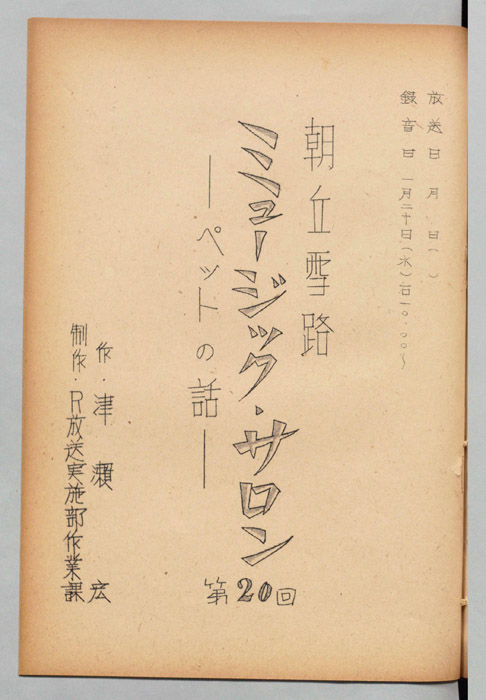 放送日 月 日( )
録音日 一月二十日(水)石一〇.〇〇〜
朝丘雪路
ミュージック・サロン
―ペットの話―
第20回
作・津瀬宏
制作・R放送実施部作業課